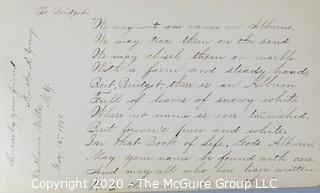 To Bridget.
"We may write our names in Albums,
We may trace them on the sand,
We may chisel them on marble,
With a firm and steady hand;
But, Bridget, there is an Album
Full of leaves of snowy white
Where no name is ever tarnished,
But forever pure and white.
In that Book of life, God's Album,
May your name be found with care,
And may all who here have written
Sincerely your friend
Young
N.Y.
1881
Copyright © 2020 - The McGuire Group LLC